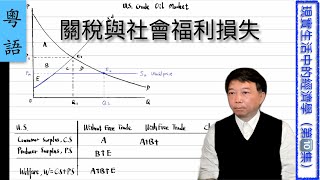 粵語
U.S. Crude Oil Market
關稅與社會福利損失
P
A
B
C
D
E
Q
U.S.
Without Free Trade
With Free Trade
Consumer Surplus, CS
A
A+B+
Producer Surplus, P.S
B+E
Welfare, W=CS+PS
A+B+E
現實生活中的經濟學（第10集）